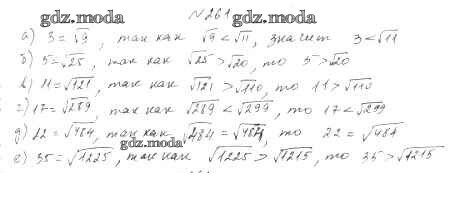 №261
gdz.moda gdz.moda
а) 3 = √9, так как √9 < √11, значит 3 < √11
б) 5 = √25, так как √25 > √20, то 5 > √20
в) 11 = √121, так как √121 > √110, то 11 > √110
г) 17 = √289, так как √289 < √299, то 17 < √299
д) 22 = √484, так как √484 = √484, то 22 = √484
gdz.moda
е) 35 = √1225, так как √1225 > √1215, то 35 > √1215